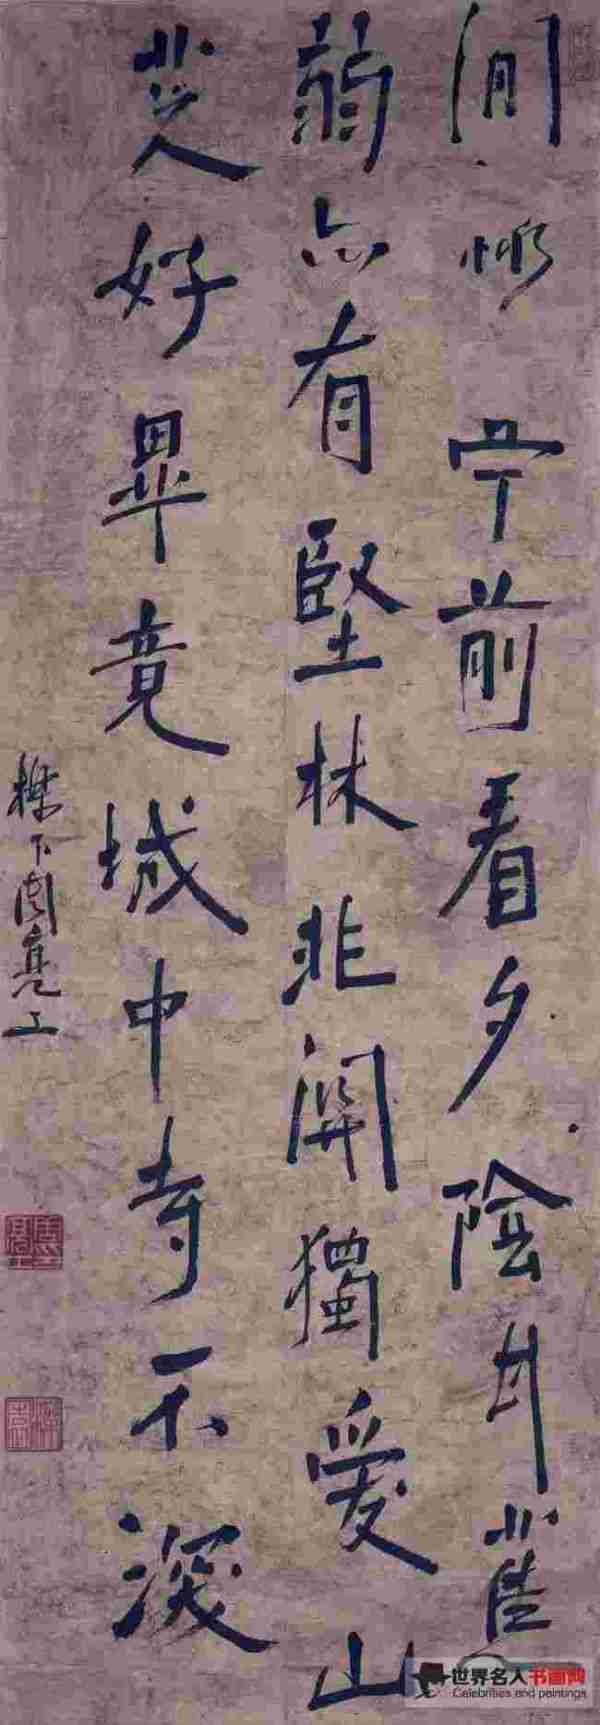 閒前看夕陰甘蕉
弱亦有堅林非關獨愛山
好畢竟城中寺不深
櫟下周亮工
世界名人书画网
Celebrities and paintings